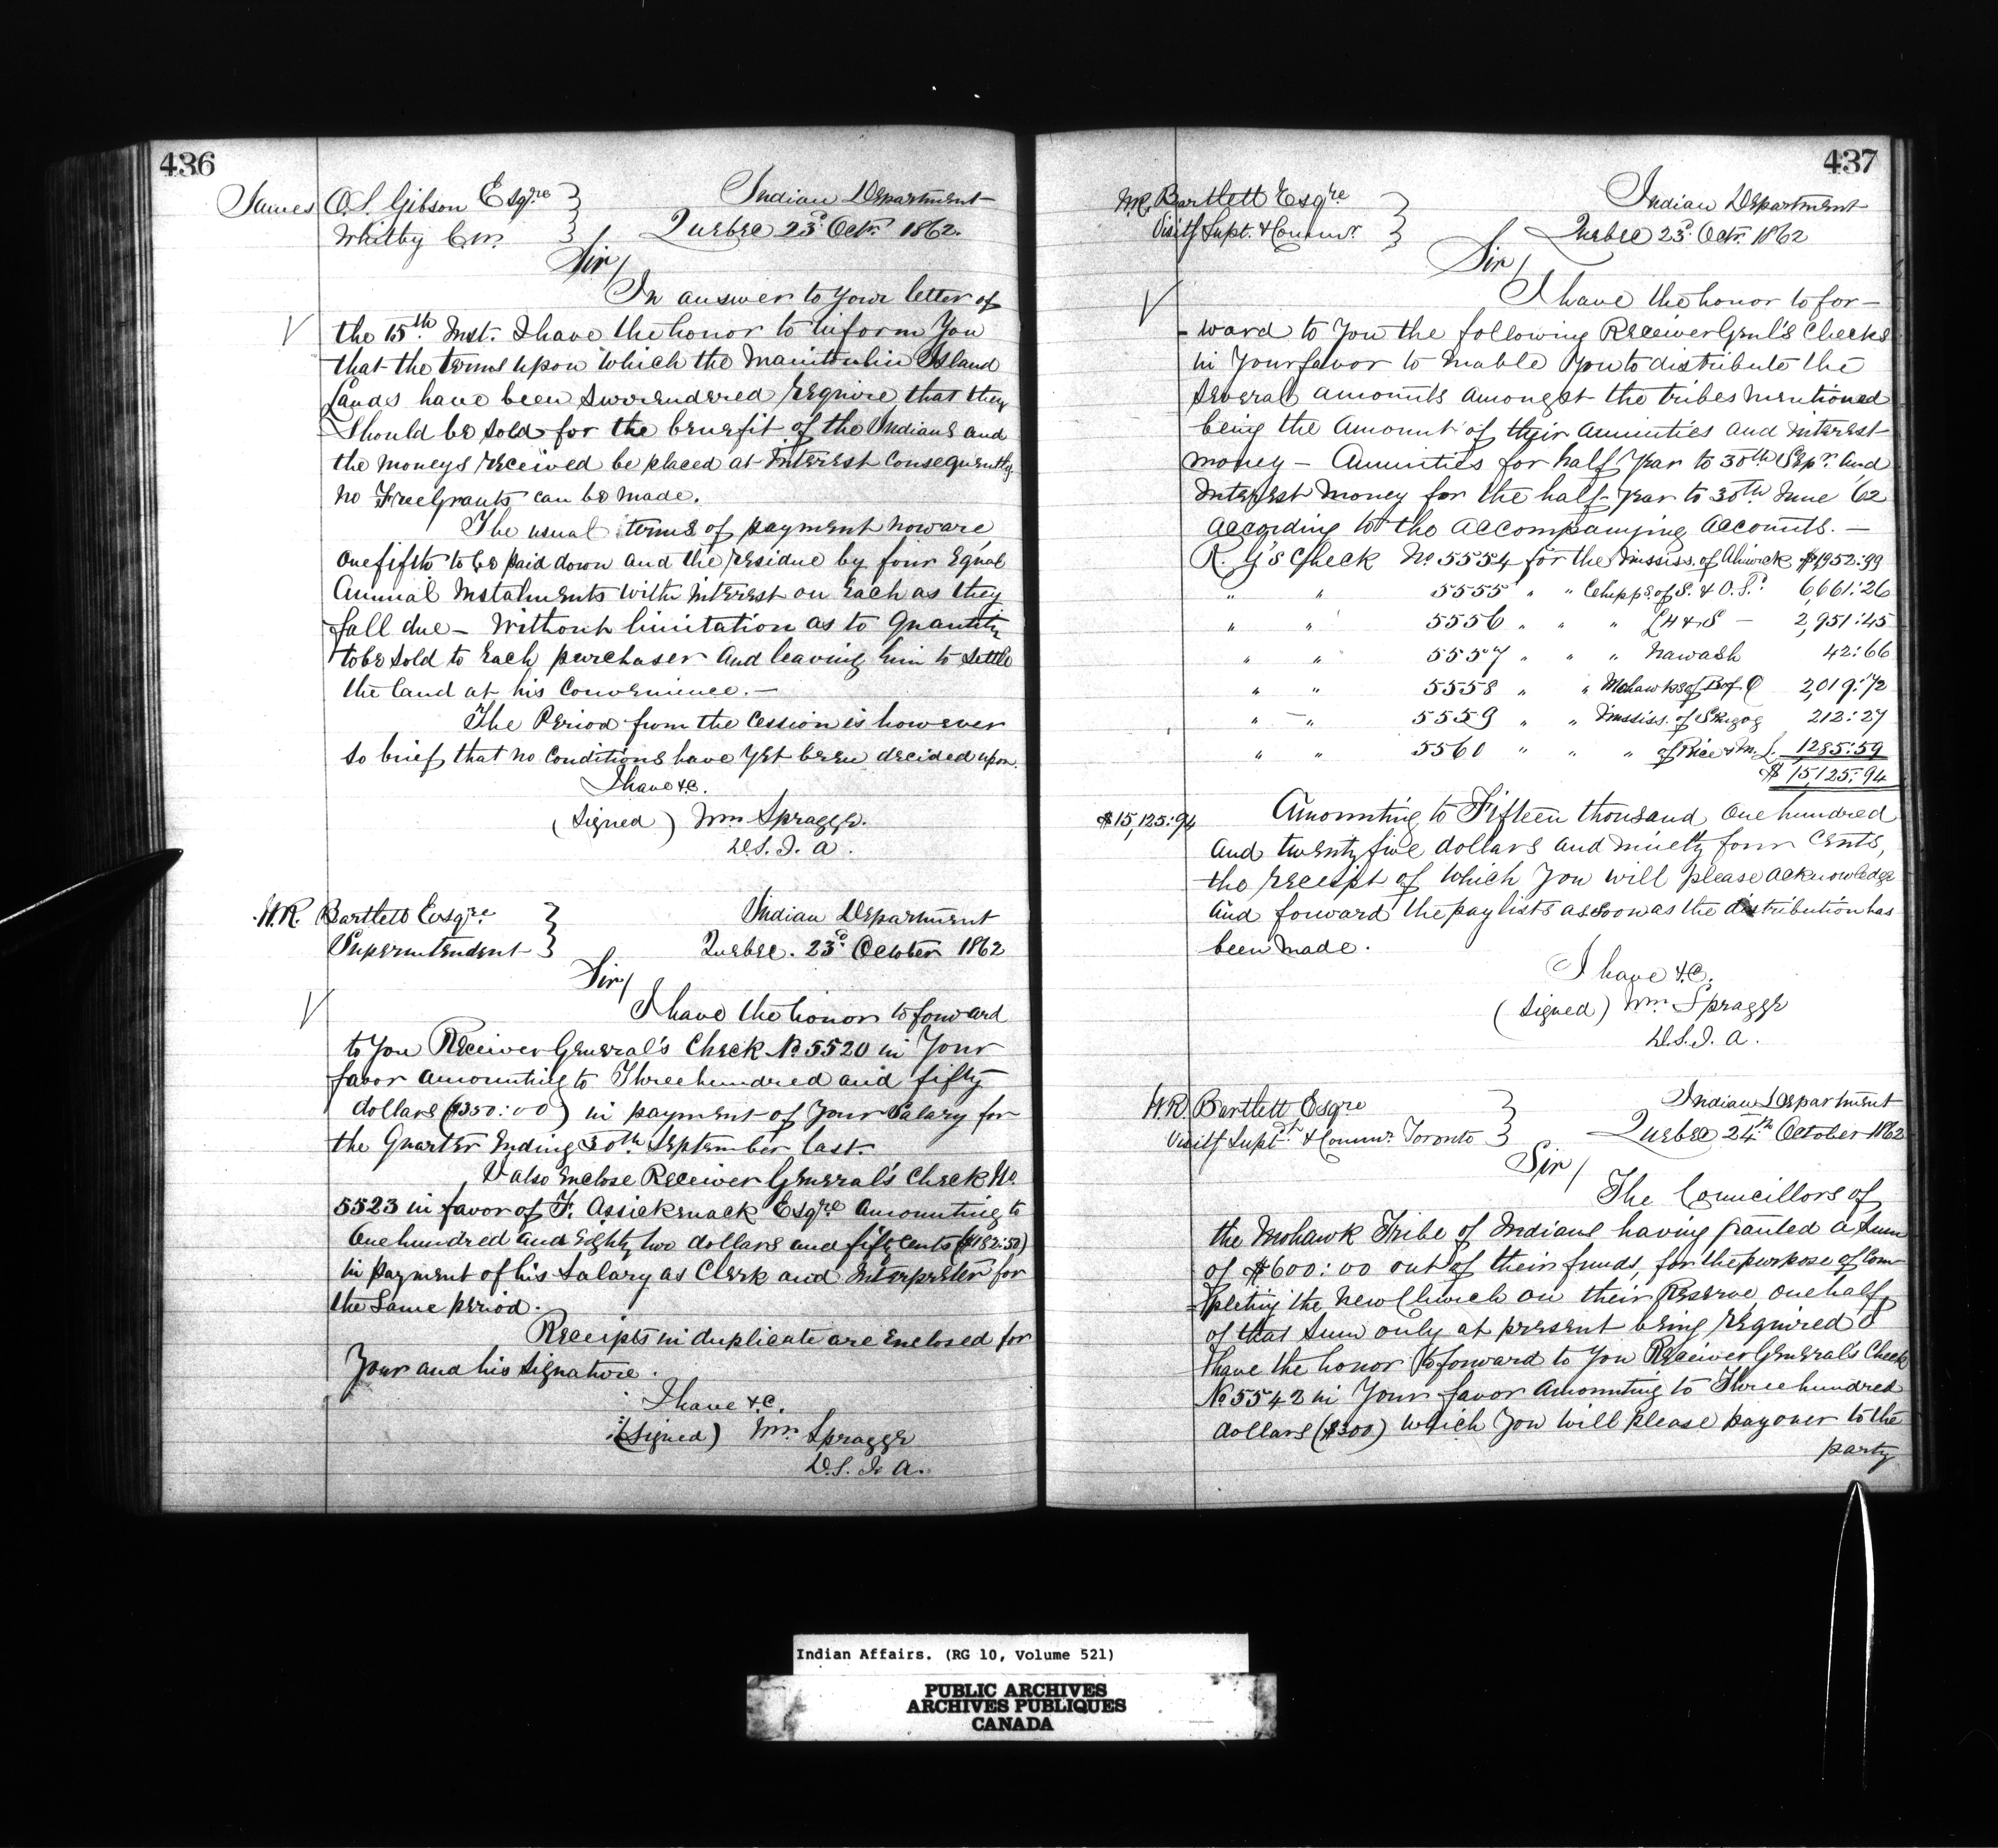 436
James O.S. Gibson Esqre
Whitby C.W.
Indian Department
Quebec 23d Octr 1862.
Sir/
In answer to Your letter of
the 15th Inst. I have the honor to inform You
that the terms upon which the Manitoulin Island
Lands have been Surrendered require that they
Should be Sold for the benefit of the Indians and
the moneys received be placed at Interest Consequently
no Free Grants can be made.
The usual terms of payment now are
one fifth to be paid down and the residue by four Equal
Annual Instalments with Interest on Each as they
fall due — Without limitation as to Quantity
to be Sold to Each purchaser and leaving him to Settle
the land at his Convenience. —
The Period from the Cession is however
So brief that no Conditions have yet been decided upon.
I have &c.
(Signed) Wm Spragge.
D.S.I.A.
W.R. Bartlett Esqre
Superintendent
Indian Department
Quebec. 23d October 1862
Sir/
I have the honor to forward
to You Receiver General's Check No 5520 in Your
favor amounting to Three hundred and fifty
dollars ($350:00) in payment of Your Salary for
the Quarter Ending 30th September last.
I also Enclose Receiver General's Check No
5523 in favor of F. Assicknack Esqre Amounting to
One hundred and Eighty two dollars and fifty cents ($182:50)
in payment of his Salary as Clerk and Interpreter for
the Same period.
Receipts in duplicate are Enclosed for
Your and his Signature.
I have &c.
(Signed) Wm Spragge
D.S.I.A.
437
W.R. Bartlett Esqre
Visitg Supt. & Commr.
Indian Department
Quebec 23d Octr. 1862
Sir/
I have the honor to for-
-ward to You the following Receiver Genl's Checks
in Your favor to Enable You to distribute the
Several amounts amongst the tribes mentioned
being the Amount of their Annuities and Interest
money — Annuities for half Year to 30th Sepr. and
Interest Money for the half-Year to 30th June '62
According to the Accompanying Accounts. —
R. G's Check No. 5554 for the Mississ. of Alnwick $1952:99
" " 5555 " " Chipps. of S. & O. S. 6,661:26
" " 5556 " " " L H & S — 2,951:45
" " 5557 " " " Nawash 42:66
" " 5558 " " Mohawks of B of Q 2,019:72
" " 5559 " " Mississ. of Skugog 212:27
" " 5560 " " " of Rice & M. L. 1285:59
$ 15,125:94
$15,125:94
Amounting to Fifteen thousand One hundred
and twenty five dollars and ninety four Cents,
the receipt of which You will please acknowledge
and forward the pay lists as Soon as the distribution has
been made.
I have &c.
(Signed) Wm Spragge
D.S.I.A.
W.R. Bartlett Esqre
Visitg Supt & Commr. Toronto
Indian Department
Quebec 24th October 1862
Sir/
The Councillors of
the Mohawk Tribe of Indians having granted a Sum
of $600:00 out of their funds, for the purpose of Com-
-pleting the New Church on their Reserve one half
of that Sum only at present being required I
have the honor to forward to You Receiver General's Check
No 5542 in Your favor Amounting to Three hundred
dollars ($300) which You will please pay over to the
party
Indian Affairs. (RG 10, Volume 521)
PUBLIC ARCHIVES
ARCHIVES PUBLIQUES
CANADA